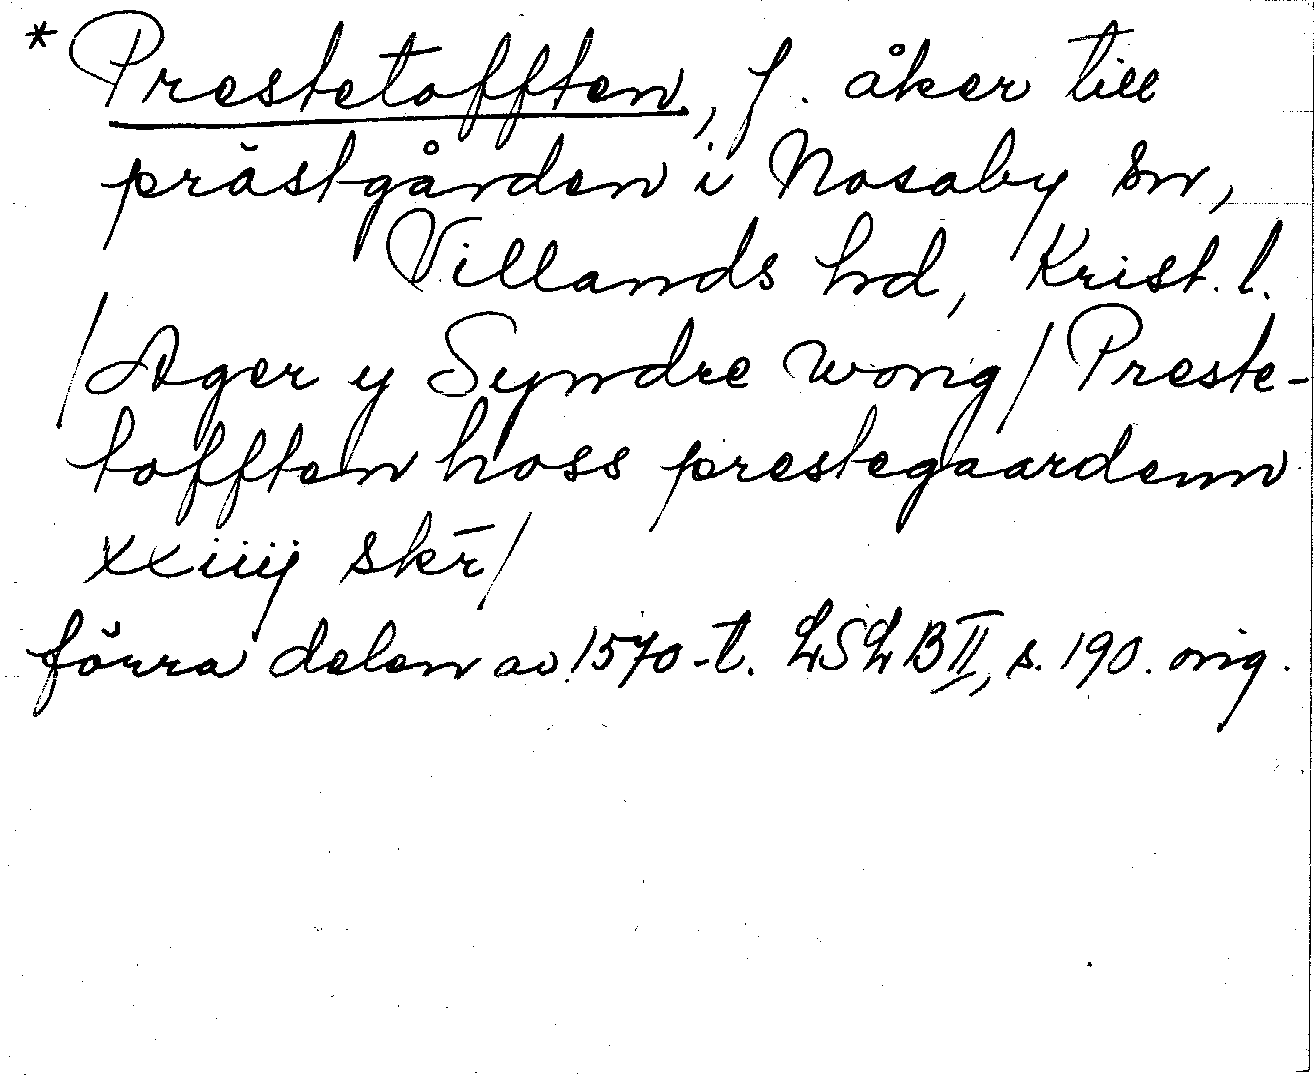 * Prestetofften, f. åker till
prästgården i Nosaby sn,
Villands hd, Krist. l.
/Ager y Syndre wong/ Preste-
tofften hoss prestegaardenn
xxiiij skr̄/
förra delen av 1570-t. LSLB II, s. 190. orig.